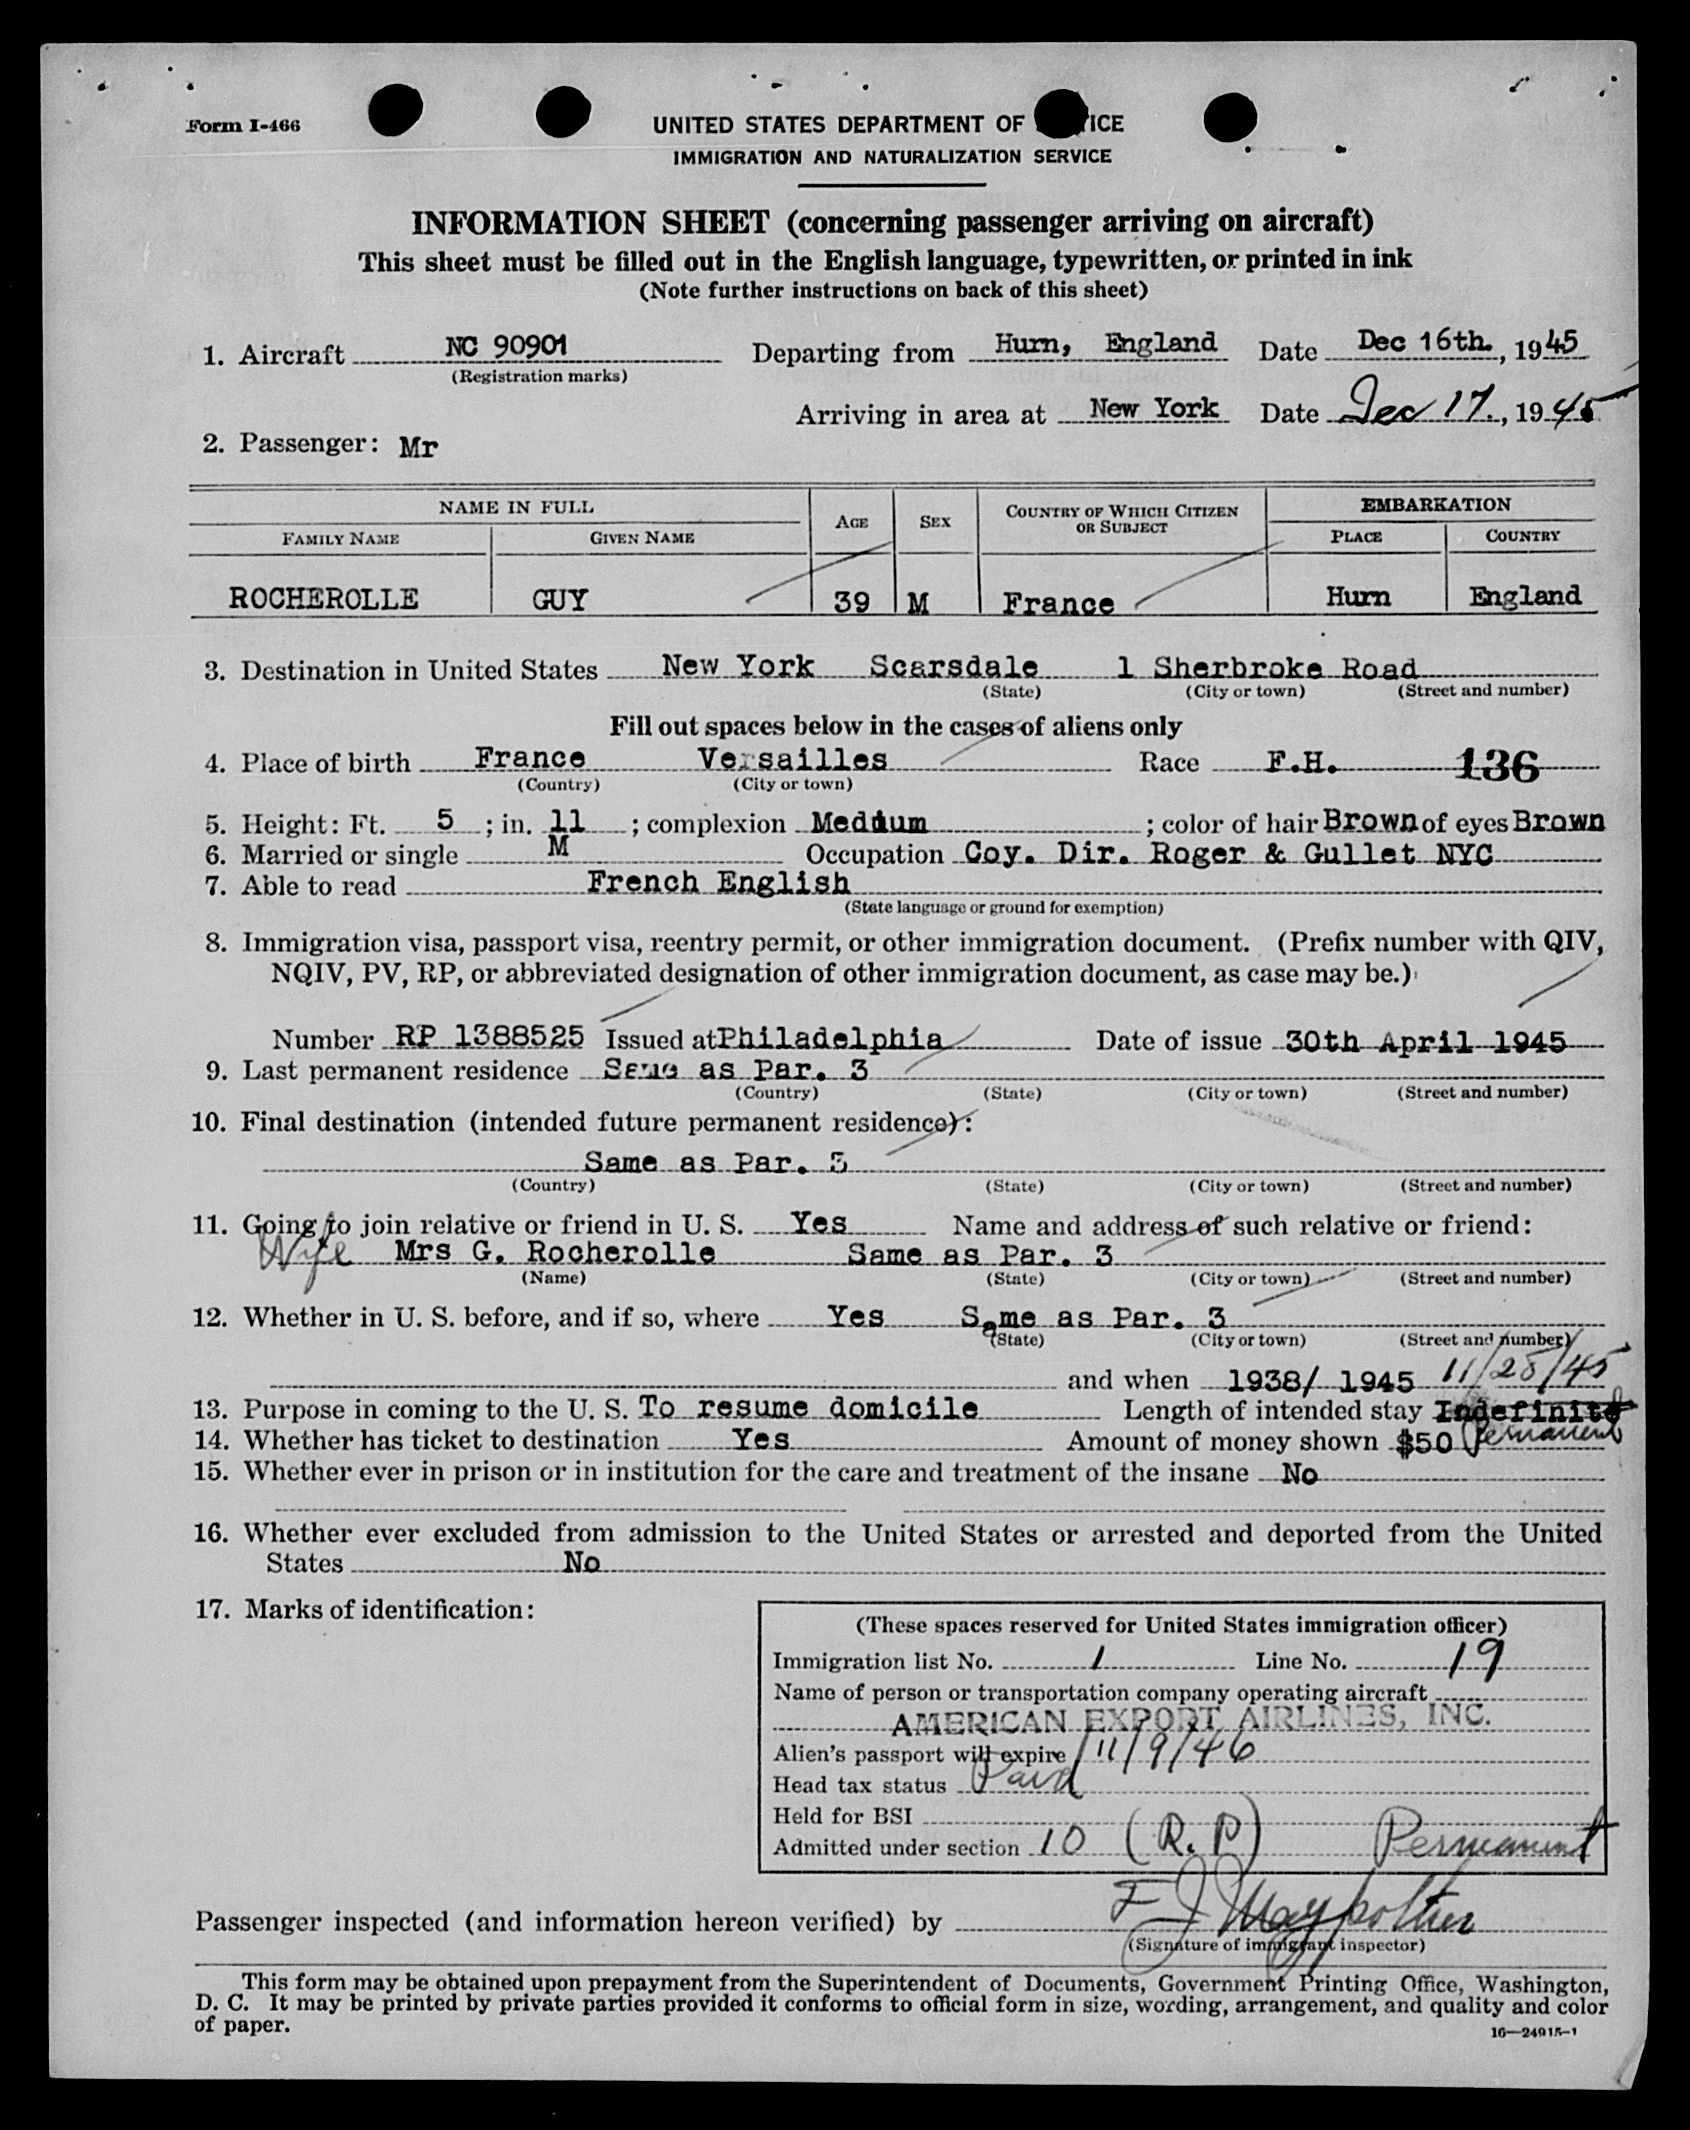 Form I-466
UNITED STATES DEPARTMENT OF ICE
IMMIGRATION AND NATURALIZATION SERVICE
INFORMATION SHEET (concerning passenger arriving on aircraft)
This sheet must be filled out in the English language, typewritten, or printed in ink
(Note further instructions on back of this sheet)
1. Aircraft NC 90901 Departing from Hurn, England Date Dec 16th., 1945
(Registration marks)
Arriving in area at New York Date Dec 17., 1945
2. Passenger: Mr
NAME IN FULL AGE SEX COUNTRY OF WHICH CITIZEN OR SUBJECT EMBARKATION
FAMILY NAME GIVEN NAME PLACE COUNTRY
ROCHEROLLE GUY 39 M France Hurn England
3. Destination in United States New York Scarsdale 1 Sherbroke Road
(State) (City or town) (Street and number)
Fill out spaces below in the cases of aliens only
4. Place of birth France Versailles Race F.H. 136
(Country) (City or town)
5. Height: Ft. 5 ; in. 11 ; complexion Medium ; color of hair Brown of eyes Brown
6. Married or single M Occupation Coy. Dir. Roger & Gullet NYC
7. Able to read French English
(State language or ground for exemption)
8. Immigration visa, passport visa, reentry permit, or other immigration document. (Prefix number with QIV,
NQIV, PV, RP, or abbreviated designation of other immigration document, as case may be.)
Number RP 1388525 Issued at Philadelphia Date of issue 30th April 1945
9. Last permanent residence Same as Par. 3
(Country) (State) (City or town) (Street and number)
10. Final destination (intended future permanent residence):
Same as Par. 3
(Country) (State) (City or town) (Street and number)
11. Going to join relative or friend in U. S. Yes Name and address of such relative or friend:
Wife Mrs G. Rocherolle Same as Par. 3
(Name) (State) (City or town) (Street and number)
12. Whether in U. S. before, and if so, where Yes Same as Par. 3
(State) (City or town) (Street and number)
and when 1938/ 1945 11/28/45
13. Purpose in coming to the U. S. To resume domicile Length of intended stay Indefinite
14. Whether has ticket to destination Yes Amount of money shown $50 Permanent
15. Whether ever in prison or in institution for the care and treatment of the insane No
16. Whether ever excluded from admission to the United States or arrested and deported from the United
States No
17. Marks of identification:
(These spaces reserved for United States immigration officer)
Immigration list No. 1 Line No. 19
Name of person or transportation company operating aircraft
AMERICAN EXPORT AIRLINES, INC.
Alien's passport will expire 11/9/46
Head tax status Paid
Held for BSI
Admitted under section 10 (R.P) Permanent
Passenger inspected (and information hereon verified) by F J
(Signature of immigrant inspector)
This form may be obtained upon prepayment from the Superintendent of Documents, Government Printing Office, Washington,
D. C. It may be printed by private parties provided it conforms to official form in size, wording, arrangement, and quality and color
of paper.
16—24915-1